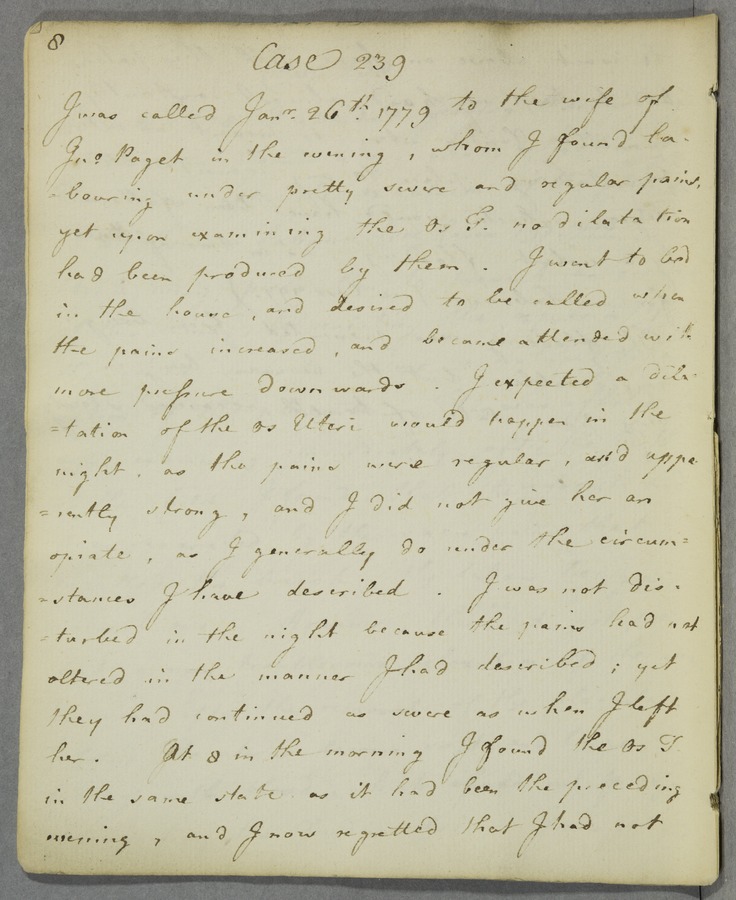 8
Case 239
I was called Janr. 26th. 1779 to the wife of
Jno Paget in the evening, whom I found la-
=bouring under pretty severe and regular pains,
yet upon examining the Os T. no dilatation
had been produced by them. I went to bed
in the house, and desired to be called when
the pains increased, and became attended with
more pressure downwards. I expected a dila-
=tation of the Os Uteri would happen in the
night, as the pains were regular, and appa
=rently strong, and I did not give her an
opiate, as I generally do under the circum=
=stances I have described. I was not dis-
=turbed in the night because the pains had not
altered in the manner I had described; yet
they had continued as severe as when I left
her. At 8 in the morning I found the Os T.
in the same state as it had been the preceding
evening, and I now regretted that I had not